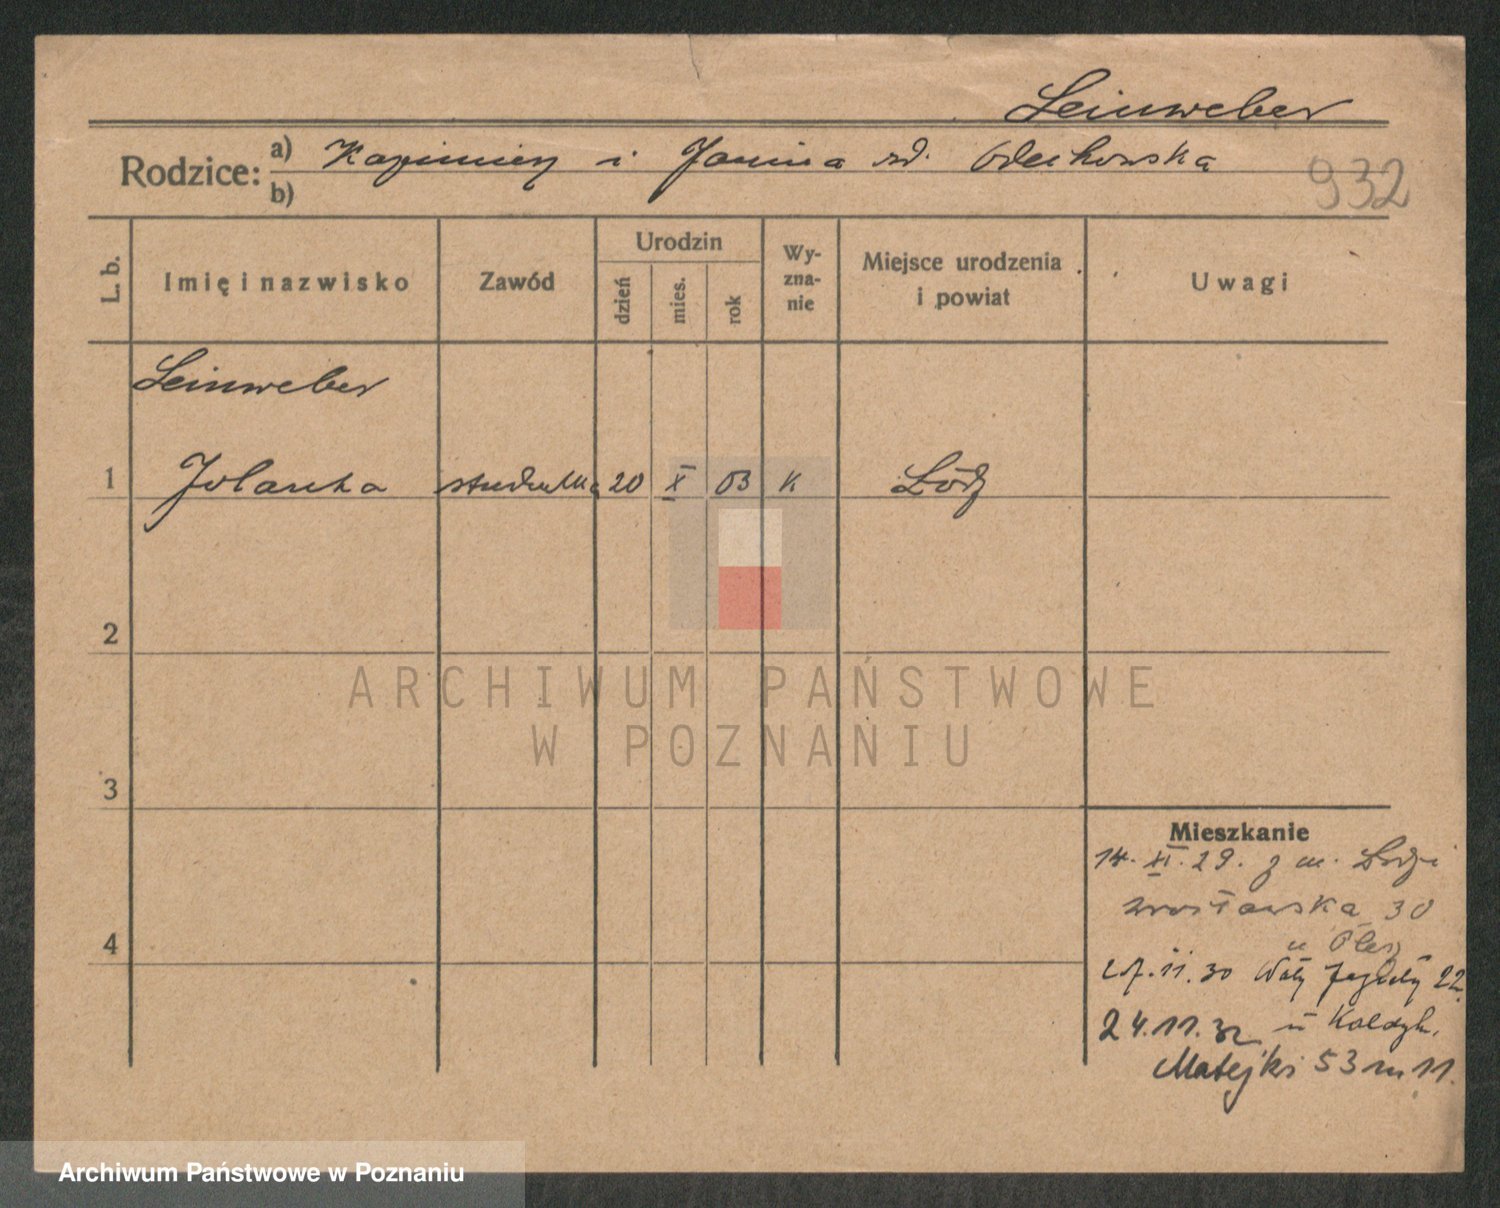 Leinweber
Rodzice: a) Kazimierz i Janina zd. Odechowska
b)
932
L. b.
Imię i nazwisko
Zawód
Urodzin
dzień
mies.
rok
Wy-
zna-
nie
Miejsce urodzenia
i powiat
Uwagi
Leinweber
1 Jolanta studentka 20 X 03 k Łódź
2
3
4
Mieszkanie
14. XI. 29. z m. Łodzi
Wrocławska 30
u
11. 30 Wały Jagiełły 22
24.11.32 u
Matejki 53 m 11.
ARCHIWUM PAŃSTWOWE
W POZNANIU
Archiwum Państwowe w Poznaniu